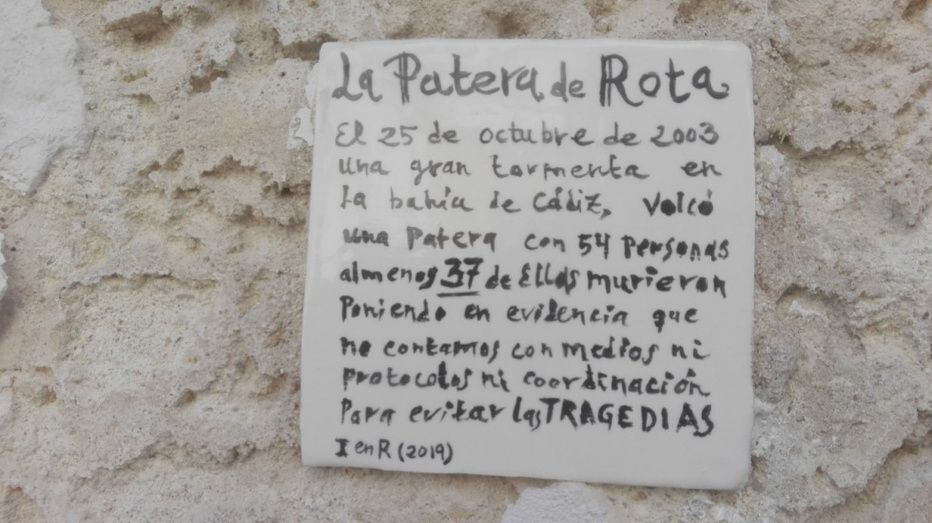 La Patera de Rota
El 25 de octubre de 2003
una gran tormenta en
la bahía de Cádiz, volcó
una patera con 54 personas
almenos 37 de Ellas murieron
Poniendo en evidencia que
no contamos con medios ni
protocolos ni coordinación
Para evitar las TRAGEDIAS
I en R (2019)